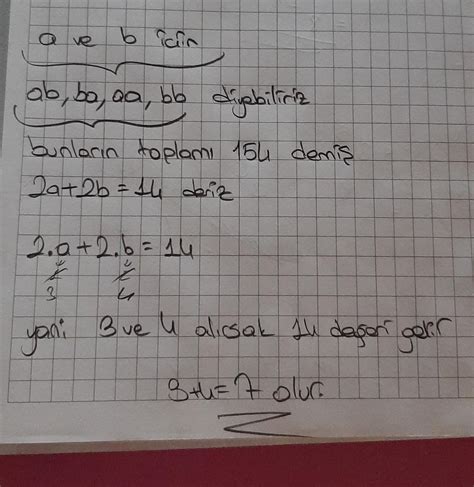 a ve b için
ab, ba, aa, bb diyebiliriz
bunların toplamı 154 demiş
2a+2b=14 deriz
2.a+2.b=14
3 4
yani 3 ve 4 alırsak 14 değeri gelir
3+4=7 olur.